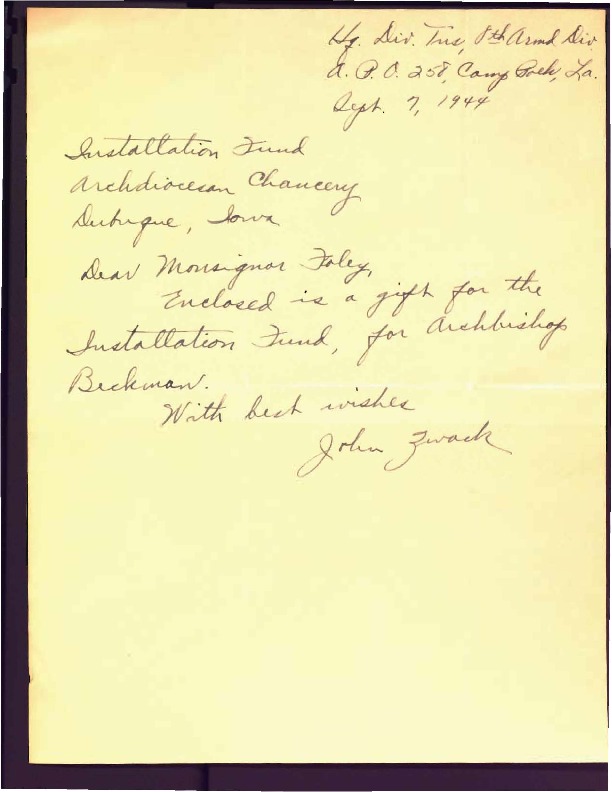 Hq. Div. Tns, 8th Armd Div.
A. P. O. 258, Camp Polk, La.
Sept. 7, 1944
Installation Fund
Archdiocesan Chancery
Dubuque, Iowa
Dear Monsignor Foley,
Enclosed is a gift for the
Installation Fund, for Archbishop
Beckman.
With best wishes
John Zwack